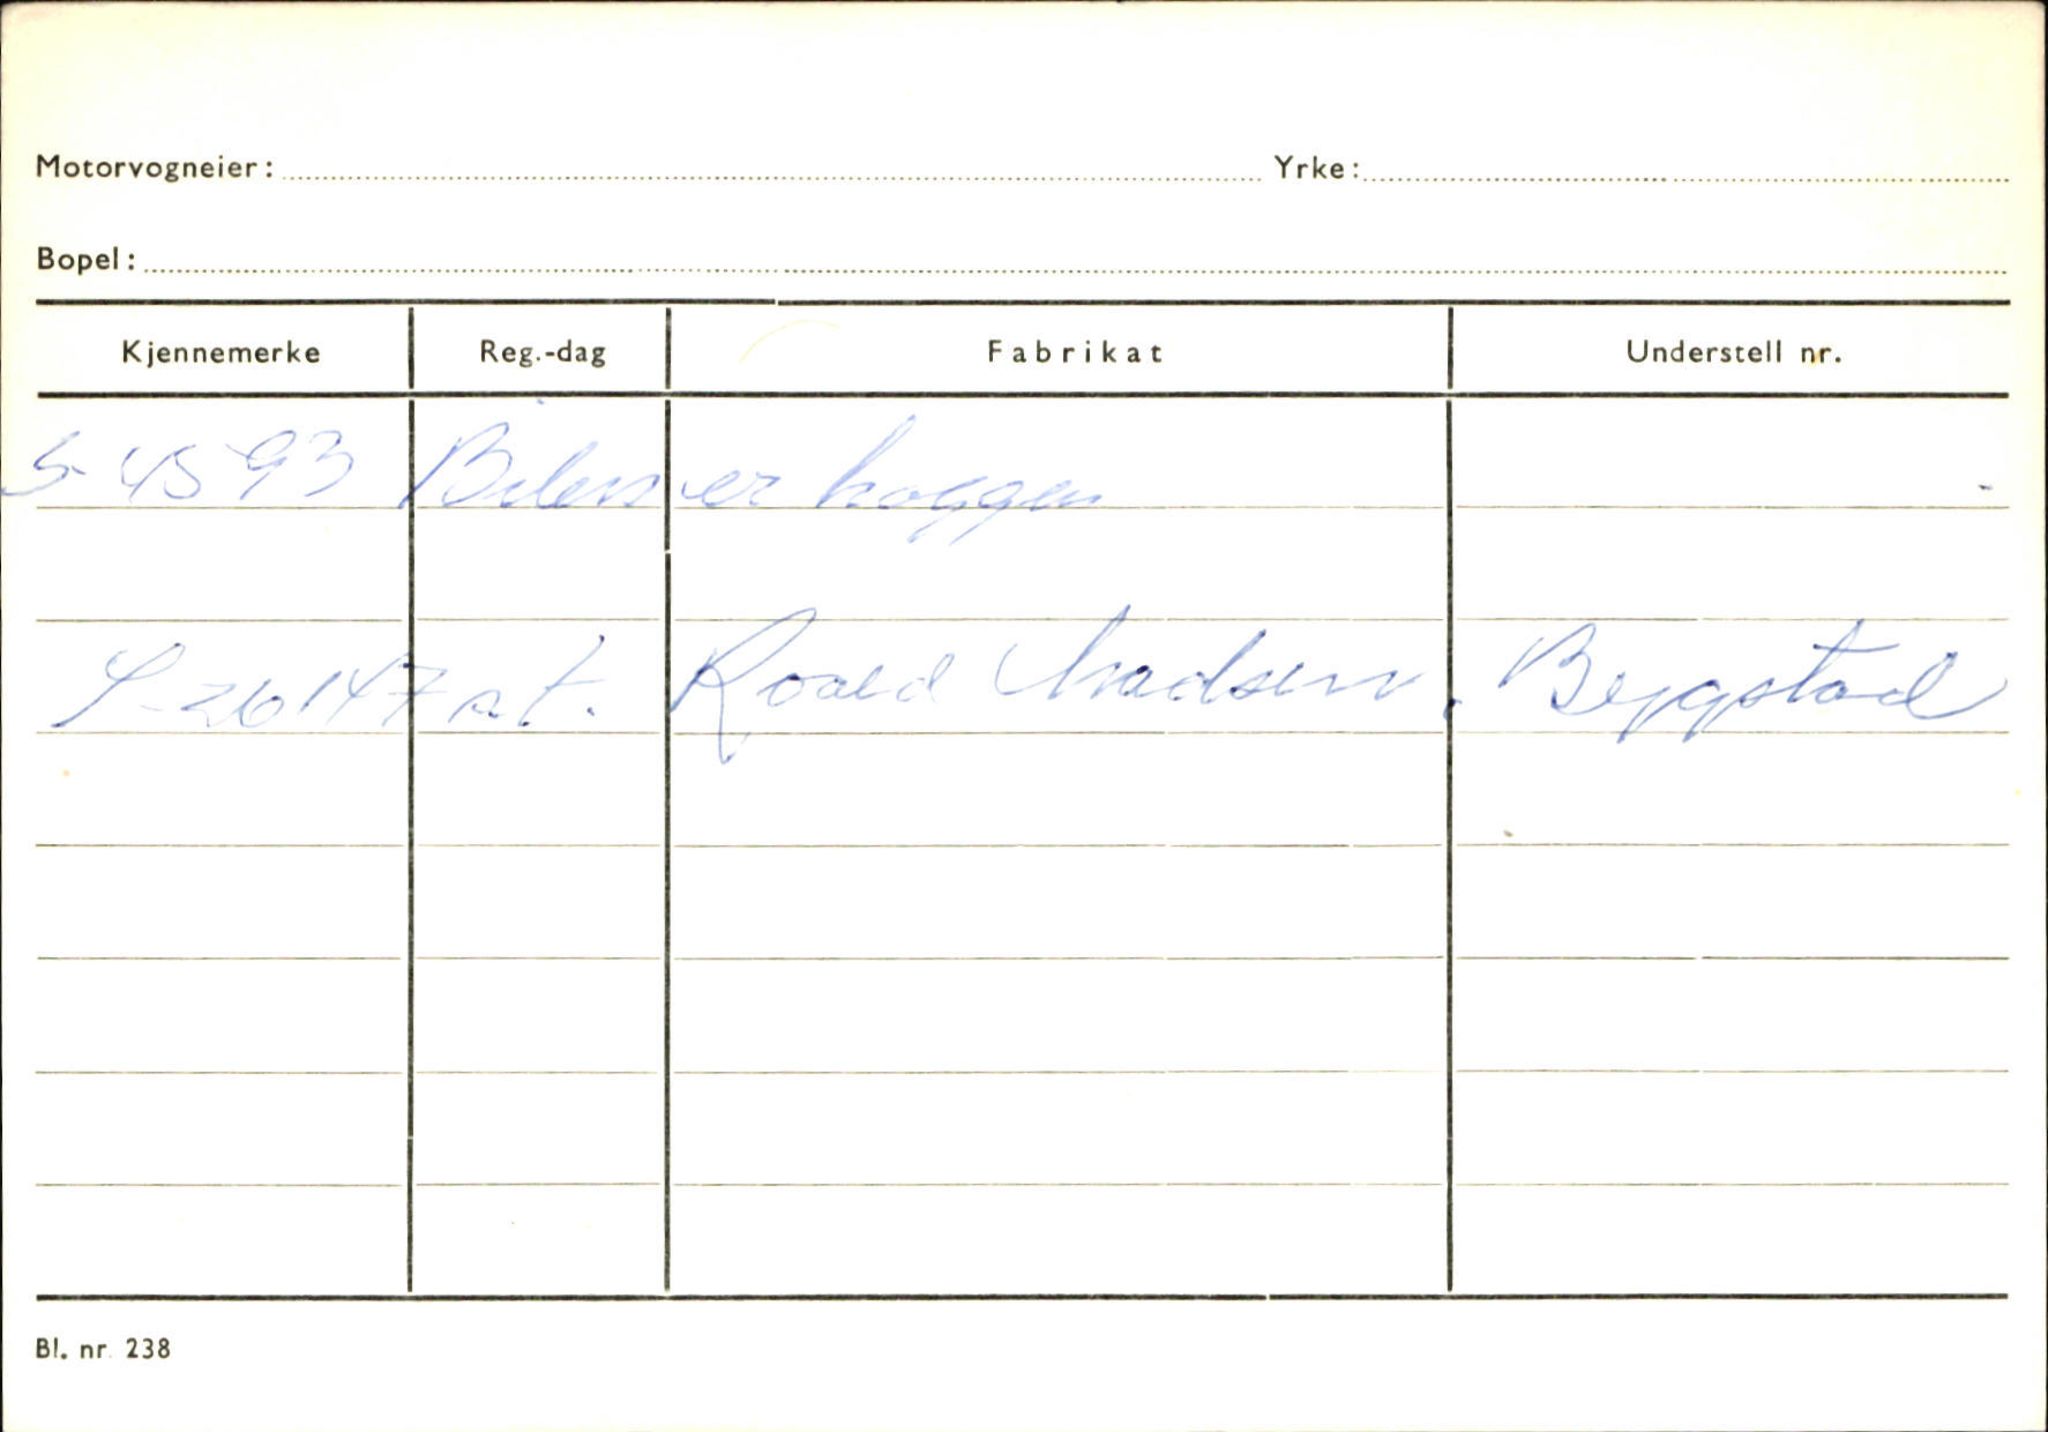 Motorvogneier: Yrke:
Bopel:
Kjennemerke Reg.-dag Fabrikat Understell nr.
S-4593 Bilen er hoggen
S-26147 s.t. Roald Madsen. Bygstad
Bl. nr. 238